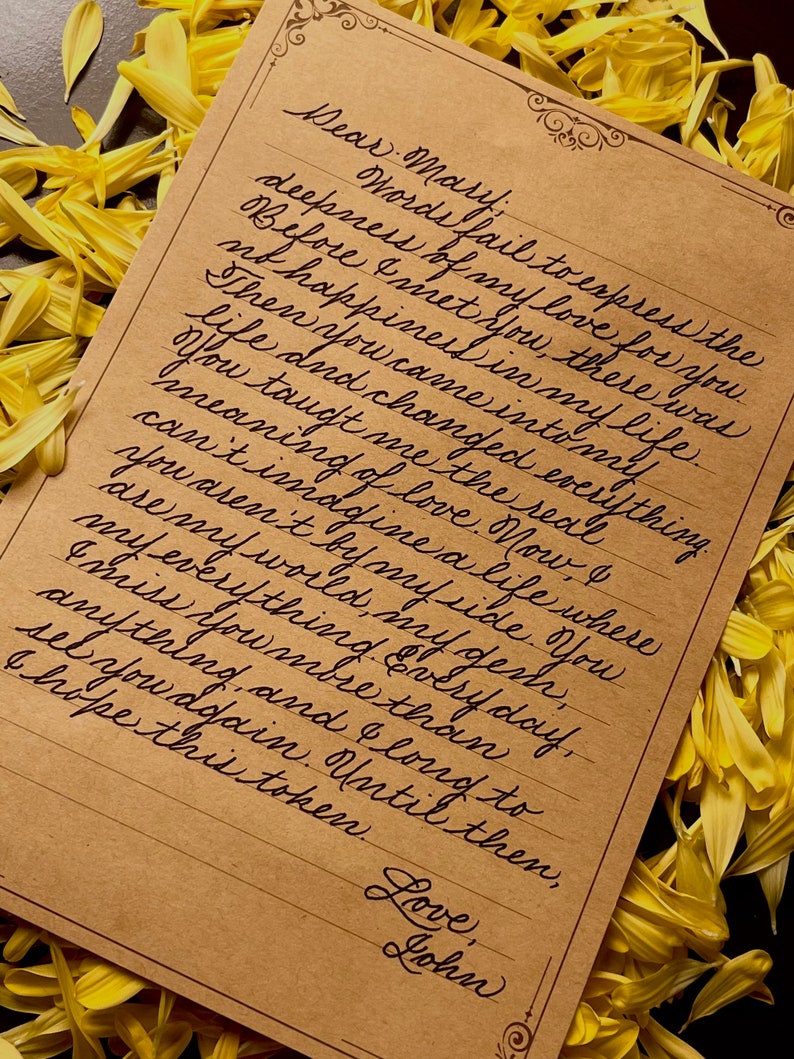 Dear Mary,
Words fail to express the
deepness of my love for you.
Before I met you, there was
no happiness in my life.
Then you came into my
life and changed everything.
You taugt me the real
meaning of love. Now, I
can't imagine a life where
you aren't by my side. You
are my world, my gem,
my everything. Everyday,
I miss you more than
anything, and I long to
see you again. Until then,
I hope this token.
Love,
John